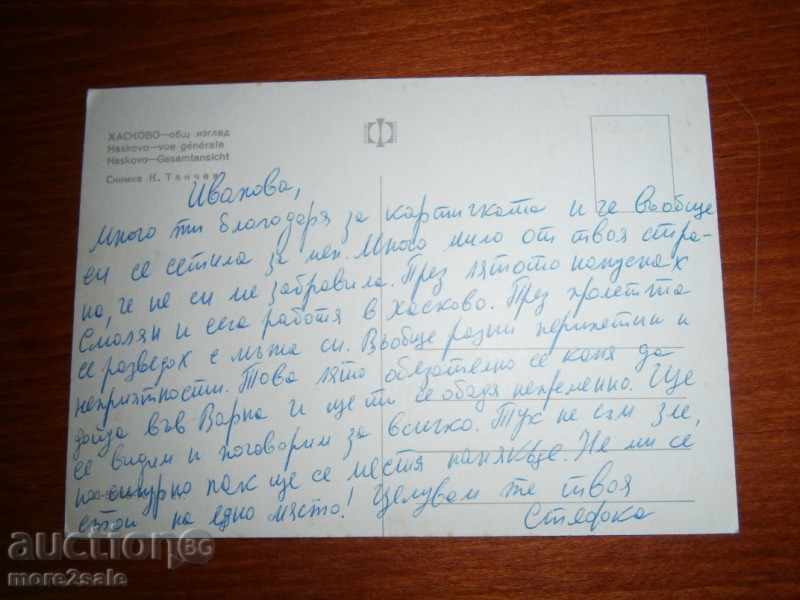 ХАСКОВО—общ изглед
Haskovo—vue générale
Haskovo—Gesamtansicht
Снимка К. Танчев
Иванова,
Много ти благодаря за картичката и че въобще
си се сетила за мен. Много мило от твоя стра-
на, че не си ме забравила. През лятото напуснах
Смолян и сега работя в Хасково. През пролетта
се разведох с мъжа си. Въобще разни перипетии и
неприятности. Това лято обезателно се каня да
дойда във Варна и ще ти се обадя непременно. Ще
се видим и поговорим за всичко. Тук не съм зле,
но сигурно пак ще се местя някъде. Не ми се
стои на едно място! Целувам те твоя
Стефка
auction.bg
more2sale